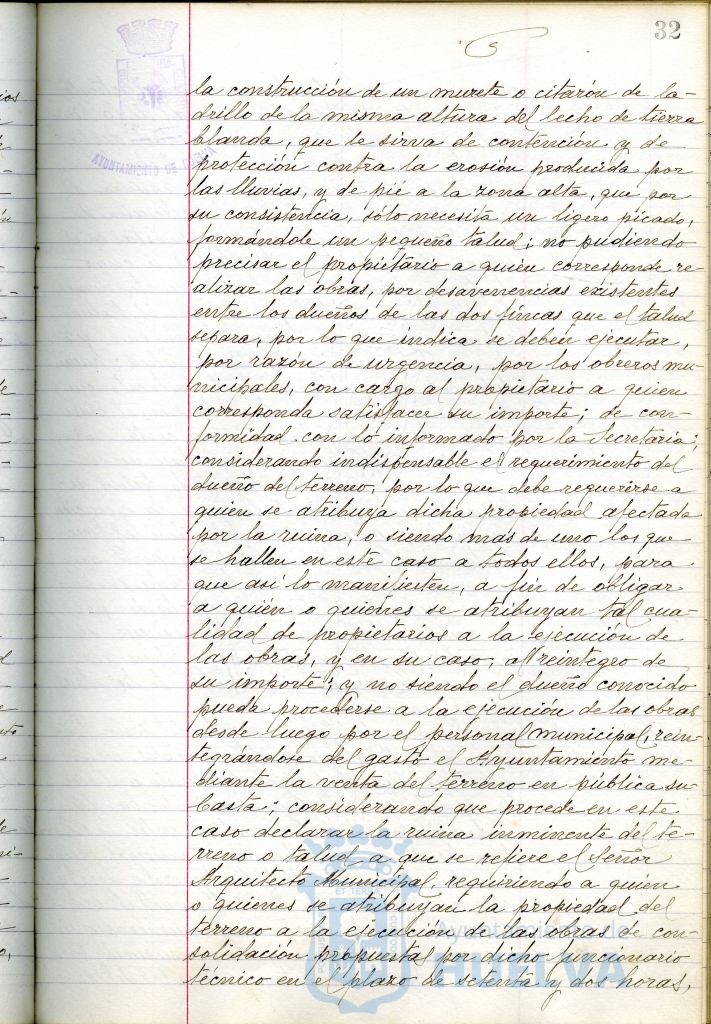 32
la construcción de un murete o citarón de la-
drillo de la misma altura del lecho de tierra
blanda, que le sirva de contención y de
protección contra la erosión producida por
las lluvias, y de pié a la zona alta, que por
su consistencia, sólo necesita un ligero picado,
formándole un pequeño talud; no pudiendo
precisar el propietario a quien corresponde re-
alizar las obras, por desavenencias existentes
entre los dueños de las dos fincas que el talud
separa, por lo que indica se deben ejecutar,
por razón de urgencia, por los obreros mu-
nicipales, con cargo al propietario a quien
corresponda satisfacer su importe; de con-
formidad con lo informado por la Secretaría;
considerando indispensable el requerimiento del
dueño del terreno, por lo que debe requerirse a
quien se atribuya dicha propiedad afectada
por la ruina, o siendo mas de uno los que
se hallen en este caso a todos ellos, para
que así lo manifiesten, a fin de obligar
a quién o quiénes se atribuyan tal cua-
lidad de propietarios a la ejecución de
las obras, y en su caso, al reintegro de
su importe; y no siendo el dueño conocido
pueda procederse a la ejecución de las obras
desde luego por el personal municipal, rein-
tegrándose del gasto el Ayuntamiento me-
diante la venta del terreno en pública su-
basta; considerando que procede en este
caso declarar la ruina inminente del te-
rreno o talud a que se refiere el Señor
Arquitecto Municipal, requiriendo a quien
o quienes se atribuyan la propiedad del
terreno a la ejecución de las obras de con-
solidación propuestas por dicho funcionario
técnico en el plazo de setenta y dos horas,
AYUNTAMIENTO DE HUELVA
Ayuntamiento de
HUELVA